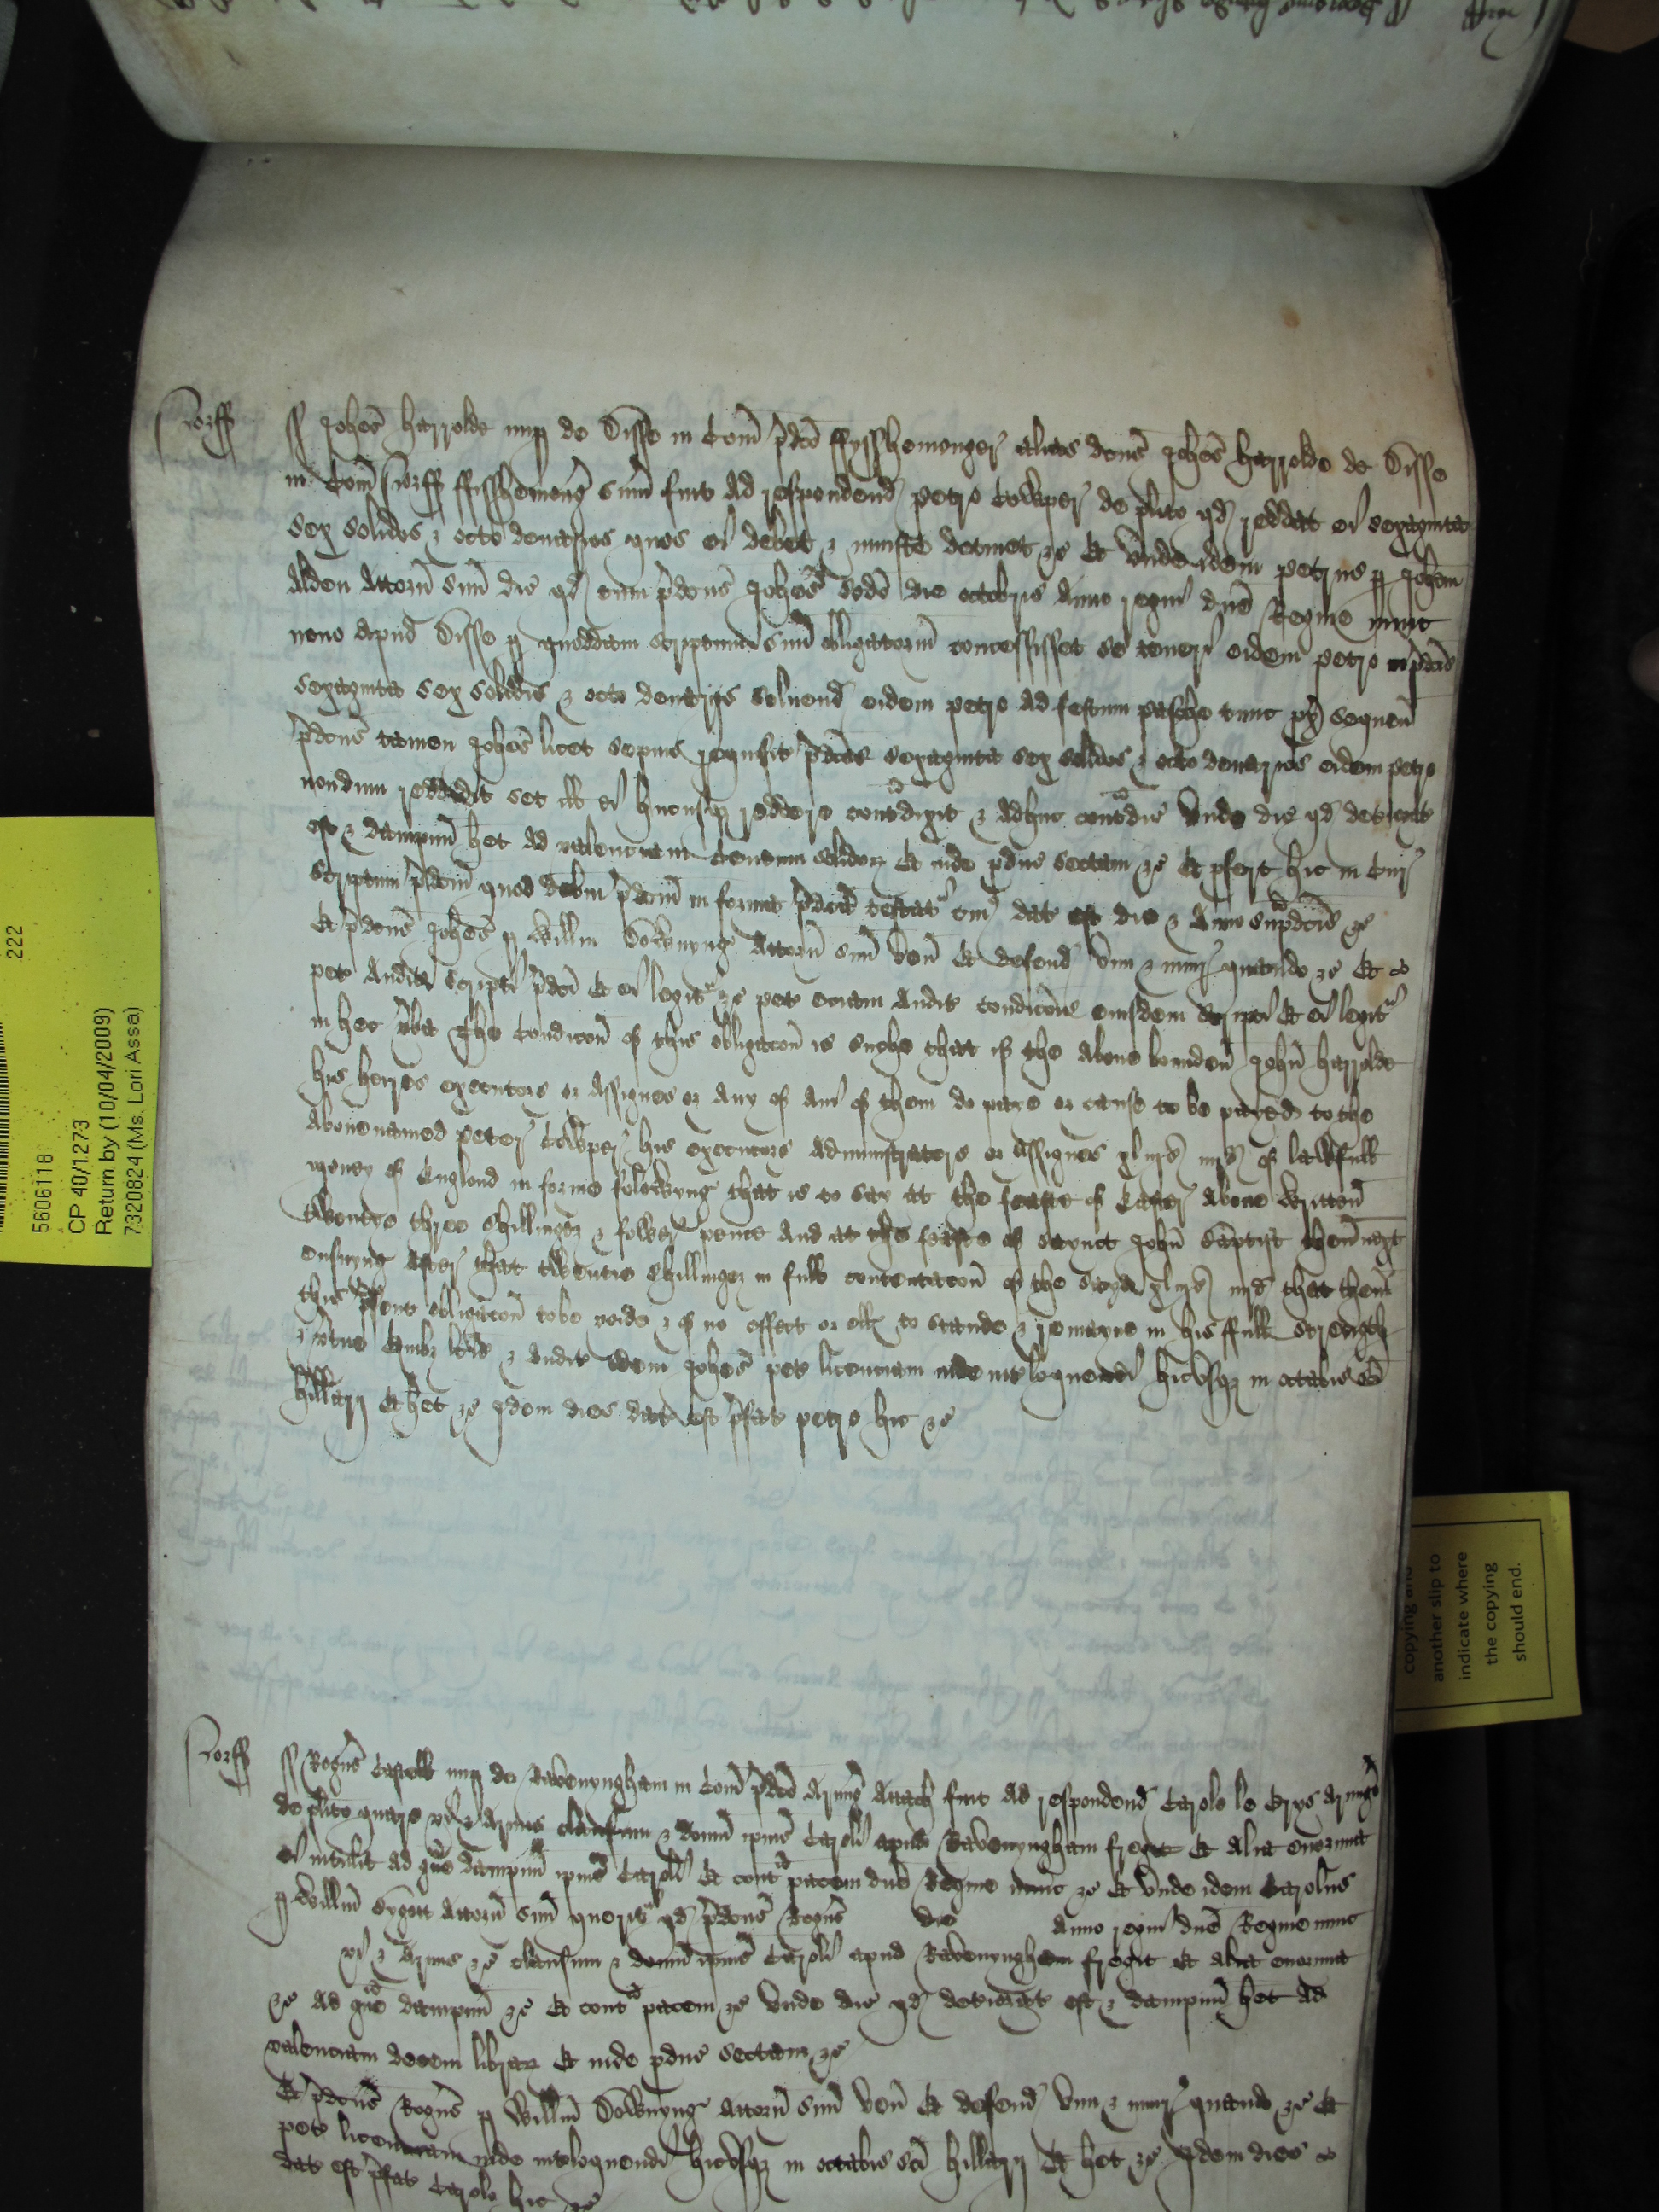 Norff
ss Johes Harrolde nup de Disse in Com pdco Ffysshemonger alias dcus Johes Harrolde de Disse
in Com Norff ffisshemong sum fuit ad respondend Petro Cowper de plito qd reddat ei sexaginta
sex solidos & octo denarios quos ei debet & iniuste detinet &c Et unde idem Petrus p Johem
Alden Attorn suu dic qd cum pdcus Johes die octobris Anno regni dne Regine nunc
nono apud Disse p quoddam scriptum suu obligatoriu concessisset se teneri eidem Petro in pdcis
sexaginta sex solidis & octo denarijs solvend eidem Petro ad festum Pasche tunc px sequen
pdcus tamen Johes licet sepius requisit pdcos sexaginta sex solidos & octo denarios eidem Petro
nondum reddidit set ill ei hucusq reddere contdixit & adhuc contdic Unde dic qd deteriorat
est & dampnu het ad valenciam Centum solidor Et inde pduc sectam &c Et pfert hic in Cur
scriptum pdcm quod debm pdcm in forma pdca testat cui dat est die & Anno supdcis &c
Et pdcus Johes p Willm Downyng Attorn suu ven Et defend vim & iniur quando &c Et
pet auditu scripti pdci Et ei legit &c pet eciam audit condicois eiusdem scripti Et ei legit
in hec vba The Condicon of this obligacon is suche that if the above bounden John Harrolde
his heyres executors or Assignes or any of ani of them do paye or cause to be payed to the
abovenamed Peter Cowper his executors Administrators or Assignes of lawfull
money of Englond in forme folowyng that is to say at the feaste of Easter above written
twentye three shillinges & fower pence And at the feaste of saynt John Baptist then next
ensuyng after that twentie shillinges in full contentacon of the sayde that then
this psent obligacon to be voide & of no effect or ell to stande & remayne in his full strength
& vtue Quibz lcis & audit idem Johes pet licenciam inde intloquendi hic usq in octabis sci
Hillarij Et het &c idem dies dat est pfat Petro hic &c
Norff
ss Rogus Castell nup de Ravenyngham in Com pdco Armig Attach fuit ad respondend Carolo le Grys armigo
de plito quare vi & armis clausum & domu ipius Caroli apud Ravenyngham fregit Et alia enormia
ei intulit ad gve dampnu ipius Caroli Et cont pacem dne Regine nunc &c Et unde idem Carolus
p Willm Bygott Attorn suu querit qd pdcus Rogus die Anno regni dne Regine nunc
vi & armis &c clausum & domu ipius Caroli apud Ravenyngham fregit Et alia enormia
&c Ad gve dampnu &c Et cont pacem &c Unde dic qd deteriorat est & dampnu het ad
valenciam decem librar Et inde pduc sectam &c
Et pdcus Rogus p Willm Downyng Attorn suu ven Et defend vim & iniur quando &c Et
pet licenciam inde intloquendi hic usq in octabis sci Hillarij Et het &c idem dies
dat est pfat Carolo hic &c
222
5606118
CP 40/1273
Return by (10/04/2009)
7320824 (Ms. Lori Assa)
copying and
another slip to
indicate where
the copying
should end.